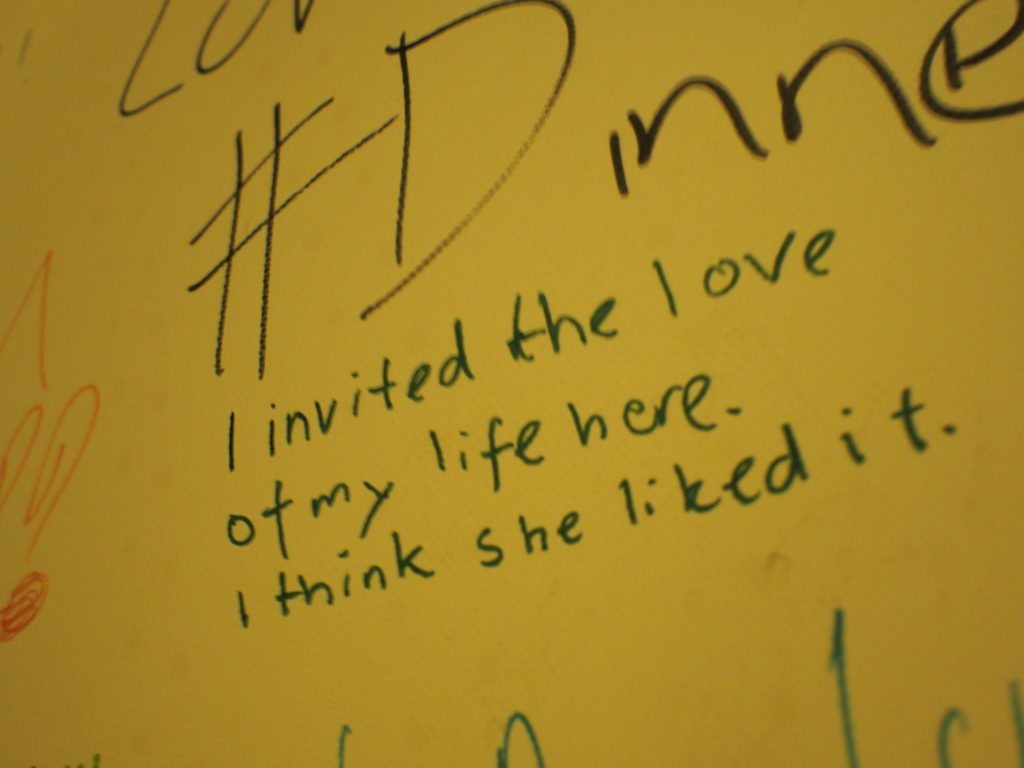 #Dinne
I invited the love
of my life here.
I think she liked it.